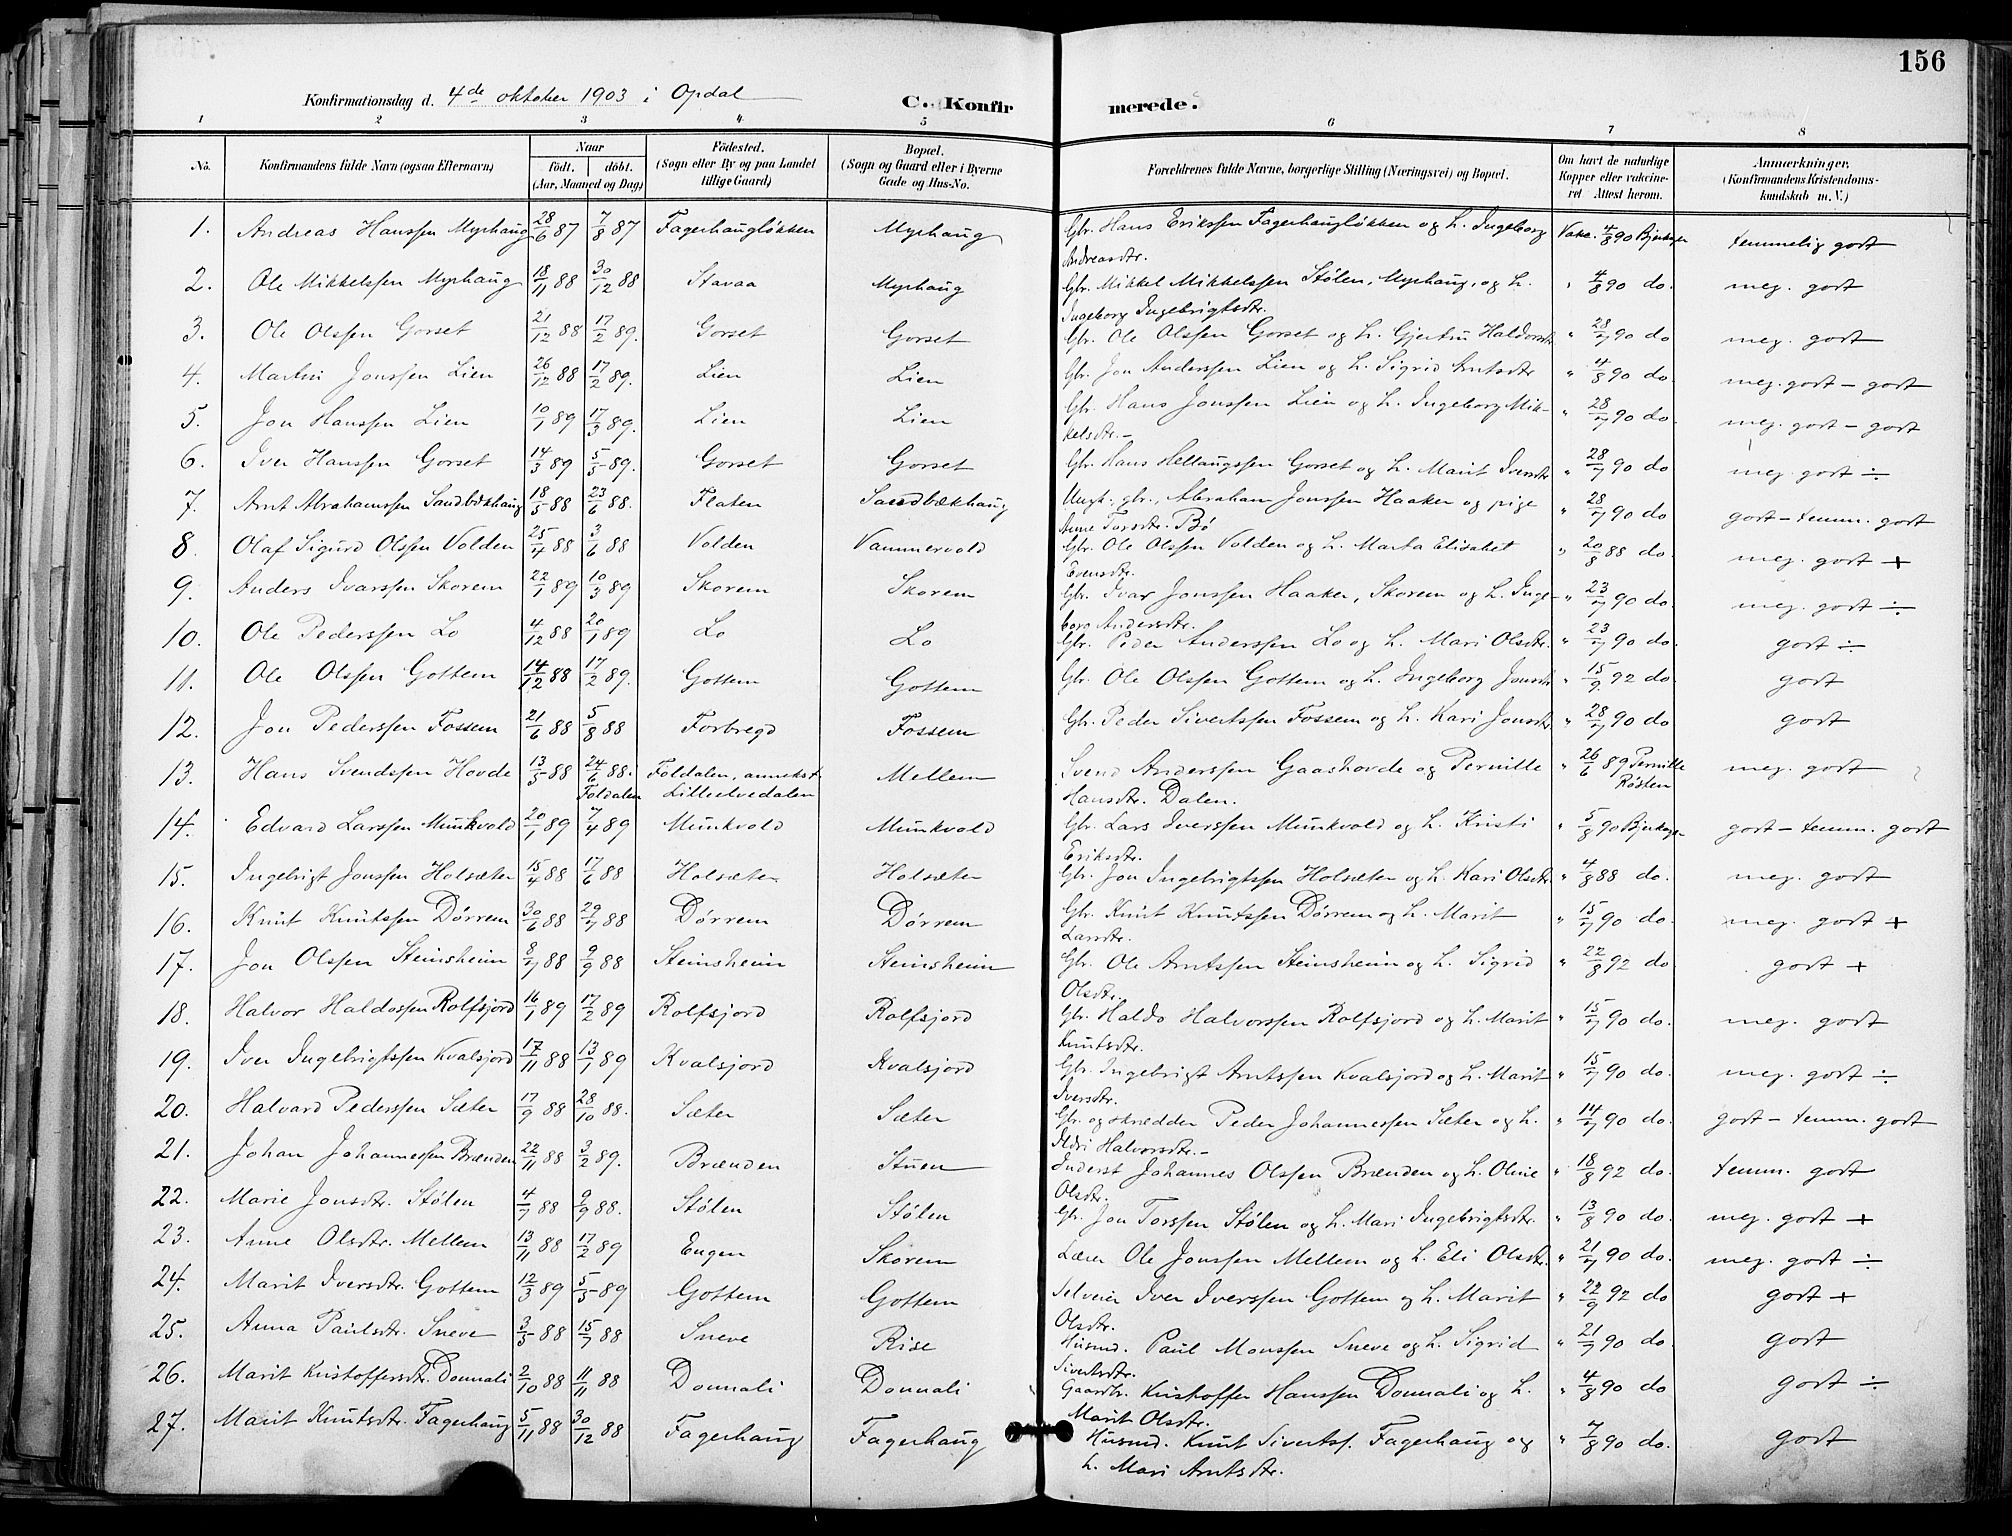 156
Konfirmationsdag d. 4de oktober 1903 i Opdal
C. Konfirmerede.
1 2 3 4 5 6 7 8
No. Konfirmandens fulde Navn (ogsaa Efternavn) Naar født. døbt. (Aar, Maaned og Dag) Fødested. (Sogn eller By og paa Landet tillige Gaard) Bopæl. (Sogn og Gaard eller i Byerne Gade og Hus-No. Forældrenes fulde Navne, borgerlige Stilling (Næringsvei) og Bopæl. Om havt de naturlige Kopper eller vakcineret Attest herom. Anmærkninger. (Konfirmandens Kristendomskundskab m. V.)
1. Andreas Hanssen Myrhaug 28/6 87 7/8 87 Fagerhaugløkken Myrhaug Gbr. Hans Erikssen Fagerhaugløkken og h. Ingeborg Andreasdtr. Vakc. 4/8 90 temmelig godt
2. Ole Mikkelssen Myrhaug 18/11 88 30/12 88 Stavaa Myrhaug Gbr. Mikkel Mikkelssen Stølen, Myrhaug, og h. Ingeborg Ingebrigtsdtr. " 4/8 90 do. meg. godt
3. Ole Olssen Gorset 21/12 88 17/2 89. Gorset Gorset Gbr. Ole Olssen Gorset og h. Gjertru Haldorsdtr " 28/7 90 do meg. godt
4. Martin Jonssen Lien 26/12 88 17/2 89. Lien Lien Gbr. Jon Anderssen Lien og h. Sigrid Arntsdtr " 4/8 90 do. meg. godt - godt
5. Jon Hanssen Lien 10/1 89 17/3 89. Lien Lien Gbr. Hans Jonssen Lien og h. Ingeborg Mikkelsdtr. - " 28/7 90 do. meg. godt - godt
6. Iver Hanssen Gorset 14/3 89 5/5 89. Gorset Gorset Gbr. Hans Hellaugssen Gorset og h. Marit Iversdtr " 28/7 90 do meg. godt ÷
7. Arnt Abrahamssen Sandbækhaug 18/5 88 23/6 88. Flaten Sandbækhaug Ungk. gbr., Abraham Jonssen Haaker og pige Anne Torsdtr. Bø " 28/7 90 do godt - temm. godt
8. Olaf Sigurd Olssen Volden 25/4 88 3/6 88 Volden Vammervold Gbr. Ole Olssen Volden og h. Marta Elisabet Evensdtr. " 20/8 88 do. meg. godt +
9. Anders Ivarssen Skorem 22/1 89 10/3 89 Skorem Skorem Gbr. Ivar Jonssen Haaker, Skorem og h. Ingeborg Andersdtr. " 23/7 90 do. meg. godt ÷
10. Ole Pederssen Lo 4/12 88 20/1 89 Lo Lo Gbr. Peder Anderssen Lo og h. Mari Olsdtr. " 23/7 90 do. godt ÷
11. Ole Olssen Gottem 14/12 88 17/2 89. Gottem Gottem Gbr. Ole Olssen Gottem og h. Ingeborg Jonsdtr " 15/9 92 do. godt
12. Jon Pederssen Fossem 21/6 88 5/8 88 Forbregd Fossem Gbr. Peder Sivertssen Fossem og h. Kari Jonsdtr " 28/7 90 do godt
13. Hans Svendssen Hovde 13/5 88 24/6 88. Foldalen Foldalen, annekst Lilleelvedalen Mellem Svend Anderssen Gaashovde og Pernille Hansdtr. Dalen. " 26/6 89 Pernille Røsten meg. godt
14. Edvard Larssen Munkvold 20/1 89 7/4 89 Munkvold Munkvold Gbr. Lars Iverssen Munkvold og h. Kristi Eriksdtr. " 5/8 90 godt - temm. godt
15. Ingebrigt Jonssen Holsæter 15/4 88 17/6 88 Holsæter Holsæter Gbr. Jon Ingebrigtssen Holsæter og h. Kari Olsdtr " 4/8 88 do. meg. godt
16. Knut Knutssen Dørrem 30/6 88 29/7 88 Dørrem Dørrem Gbr. Knut Knutssen Dørrem og h. Marit Larsdtr. " 15/7 90 do. meg. godt +
17. Jon Olssen Steinsheim 8/7 88 9/9 88 Steinsheim Steinsheim Gbr. Ole Arntssen Steinsheim og h. Sigrid Olsdtr. " 22/8 92 do godt +
18. Halvor Haldossen Rolfsjord 16/1 89 17/2 89 Rolfsjord Rolfsjord Gbr. Haldo Halvorssen Rolfsjord og h. Marit Knutsdtr. " 15/7 90 do. meg. godt
19. Iver Ingebrigtssen Kvalsjord 17/11 88 13/1 89 Kvalsjord Kvalsjord Gbr. Ingebrigt Arntssen Kvalsjord og h. Marit Iversdtr. " 15/7 90 do. meg. godt ÷
20. Halvard Pederssen Sæter 17/9 88 28/10 88. Sæter Sæter Gbr. og skrædder Peder Johannessen Sæter og h. Ildri Halvorsdtr. - " 14/7 90 do. godt - temm. godt
21. Johan Johannessen Brænden 22/11 88 3/2 89. Brænden Stuen Inderst Johannes Olssen Brænden og h. Oline Olsdtr. " 18/8 92 do. temm. godt
22. Marie Jonsdtr. Stølen 4/7 88 9/9 88. Stølen Stølen Gbr. Jon Torssen Stølen og h. Mari Ingebrigtsdtr. " 13/8 90 do. meg. godt +
23. Anne Olsdtr. Mellem 13/11 88 17/2 89 Engen Skorem Lærer Ole Jonssen Mellem og h. Eli Olsdtr. " 21/7 90 do. meg. godt ÷
24. Marit Iversdtr. Gottem 12/3 89 5/5 89 Gottem Gottem Selveier Iver Iverssen Gottem og h. Marit Olsdtr. " 22/9 92 do godt +
25. Anna Paulsdtr. Sneve 3/5 88 15/7 88 Sneve Rise Husmd. Paul Monssen Sneve og h. Sigrid Sivertsdtr. " 21/7 90 do. godt
26. Marit Kristoffersdtr. Donnali 2/10 88 11/11 88 Donnali Donnali Gaardbr. Kristoffer Hanssen Donnali og h. Marit Olsdtr. " 4/8 90 do godt ÷
27. Marit Knutsdtr. Fagerhaug 5/11 88 30/12 88 Fagerhaug Fagerhaug Husmd. Knut Sivertss. Fagerhaug og h. Mari Arntsdtr. " 7/8 90 do. godt